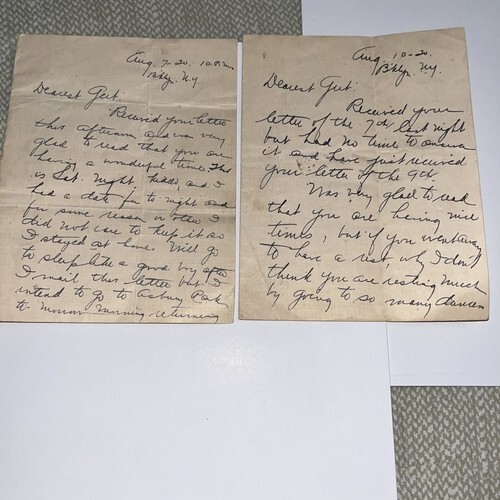 Aug. 7-20. 10 P.m.
Bklyn. N.Y.
Dearest Gert:
Received your letter
this afternoon and was very
glad to read that you are
having a wonderful time. This
is Sat. night, kiddo, and I
had a date for to night and
for some reason or other I
did not care to keep it so
I stayed at home. Will go
to sleep like a good boy after
I mail this letter but I
intend to go to Asbury Park
to-morrow morning returning
Aug. 10-20.
Bklyn. N.Y.
Dearest Gert:
Received your
letter of the 7th last night
but had no time to answer
it and have just received
your letter of the 9th.
Was very glad to read
that you are having nice
times, but if you went away
to have a rest why I don't
think you are resting much
by going to so many dances